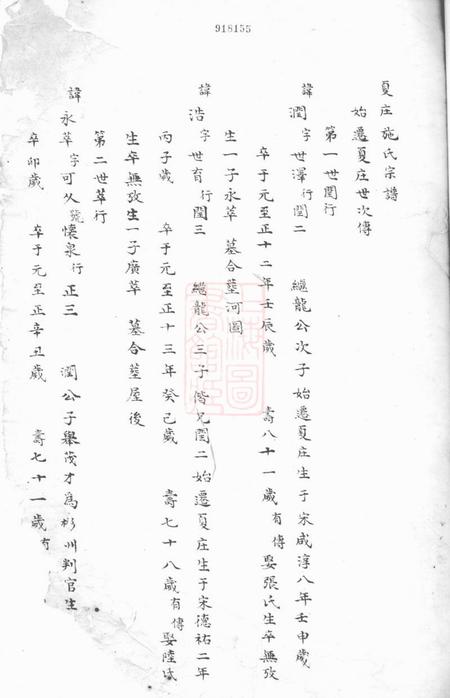 918155
夏庄施氏宗譜
始遷夏庄世次傳
第一世閏行
諱潤字世澤行閏二 繼龍公次子始遷夏庄生于宋咸淳八年壬申歲
卒于元至正十二年壬辰歲 壽八十一歲有傳娶張氏生卒無攷
生一子永萃 墓合塟河圖
諱浩字世育行閏三 繼龍公三子偕兄閏二始遷夏庄生于宋德祐二年
丙子歲 卒于元至正十三年癸己歲 壽七十八歲有傳娶陸氏
生卒無攷生一子廣萃 墓合塟屋後
第二世萃行
諱永萃字可久號懷泉行正三 潤公子舉茂才為彬州判官生
辛卯歲 卒于元至正辛丑歲 壽七十一歲有